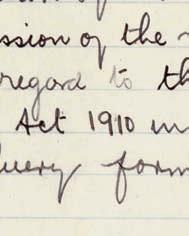 ssion of the
regard to th
Act 1910 in
query form